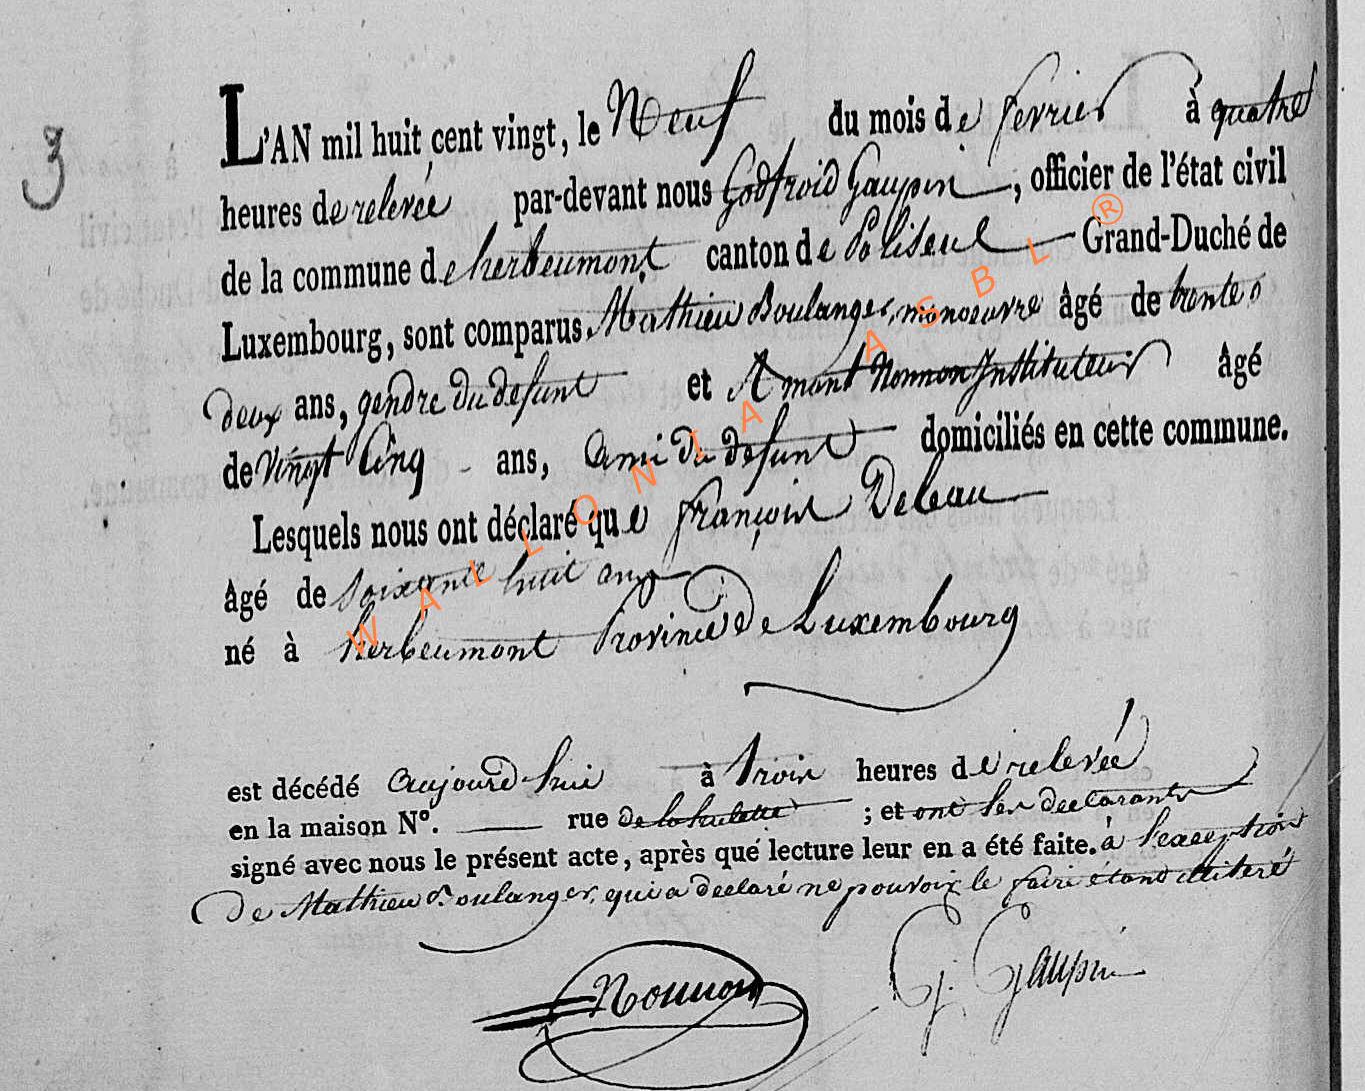 3
L'AN mil huit cent vingt, le Neuf du mois de fevrier à quatre
heures de relevée par-devant nous Godfroid Gaupin, officier de l'état civil
de la commune de herbeumont canton de Paliseul Grand-Duché de
Luxembourg, sont comparus Mathieu Boulanger, manoeuvre âgé de trente
deux ans, gendre du defunt et Amant Nonnon Instituteur âgé
de Vingt Cinq ans, ami du defunt domiciliés en cette commune.
Lesquels nous ont déclaré que françois Debeau
âgé de soixante huit ans
né à herbeumont Province de Luxembourg
est décédé aujourd'hui à trois heures de relevée
en la maison N°. rue de la hulette ; et ont les declarants
signé avec nous le présent acte, après que lecture leur en a été faite. à l'exception
de Mathieu Boulanger, qui a declaré ne pouvoir le faire étant illiteré
Nonnon G. Gaupin
WALLONIA ASBL ®